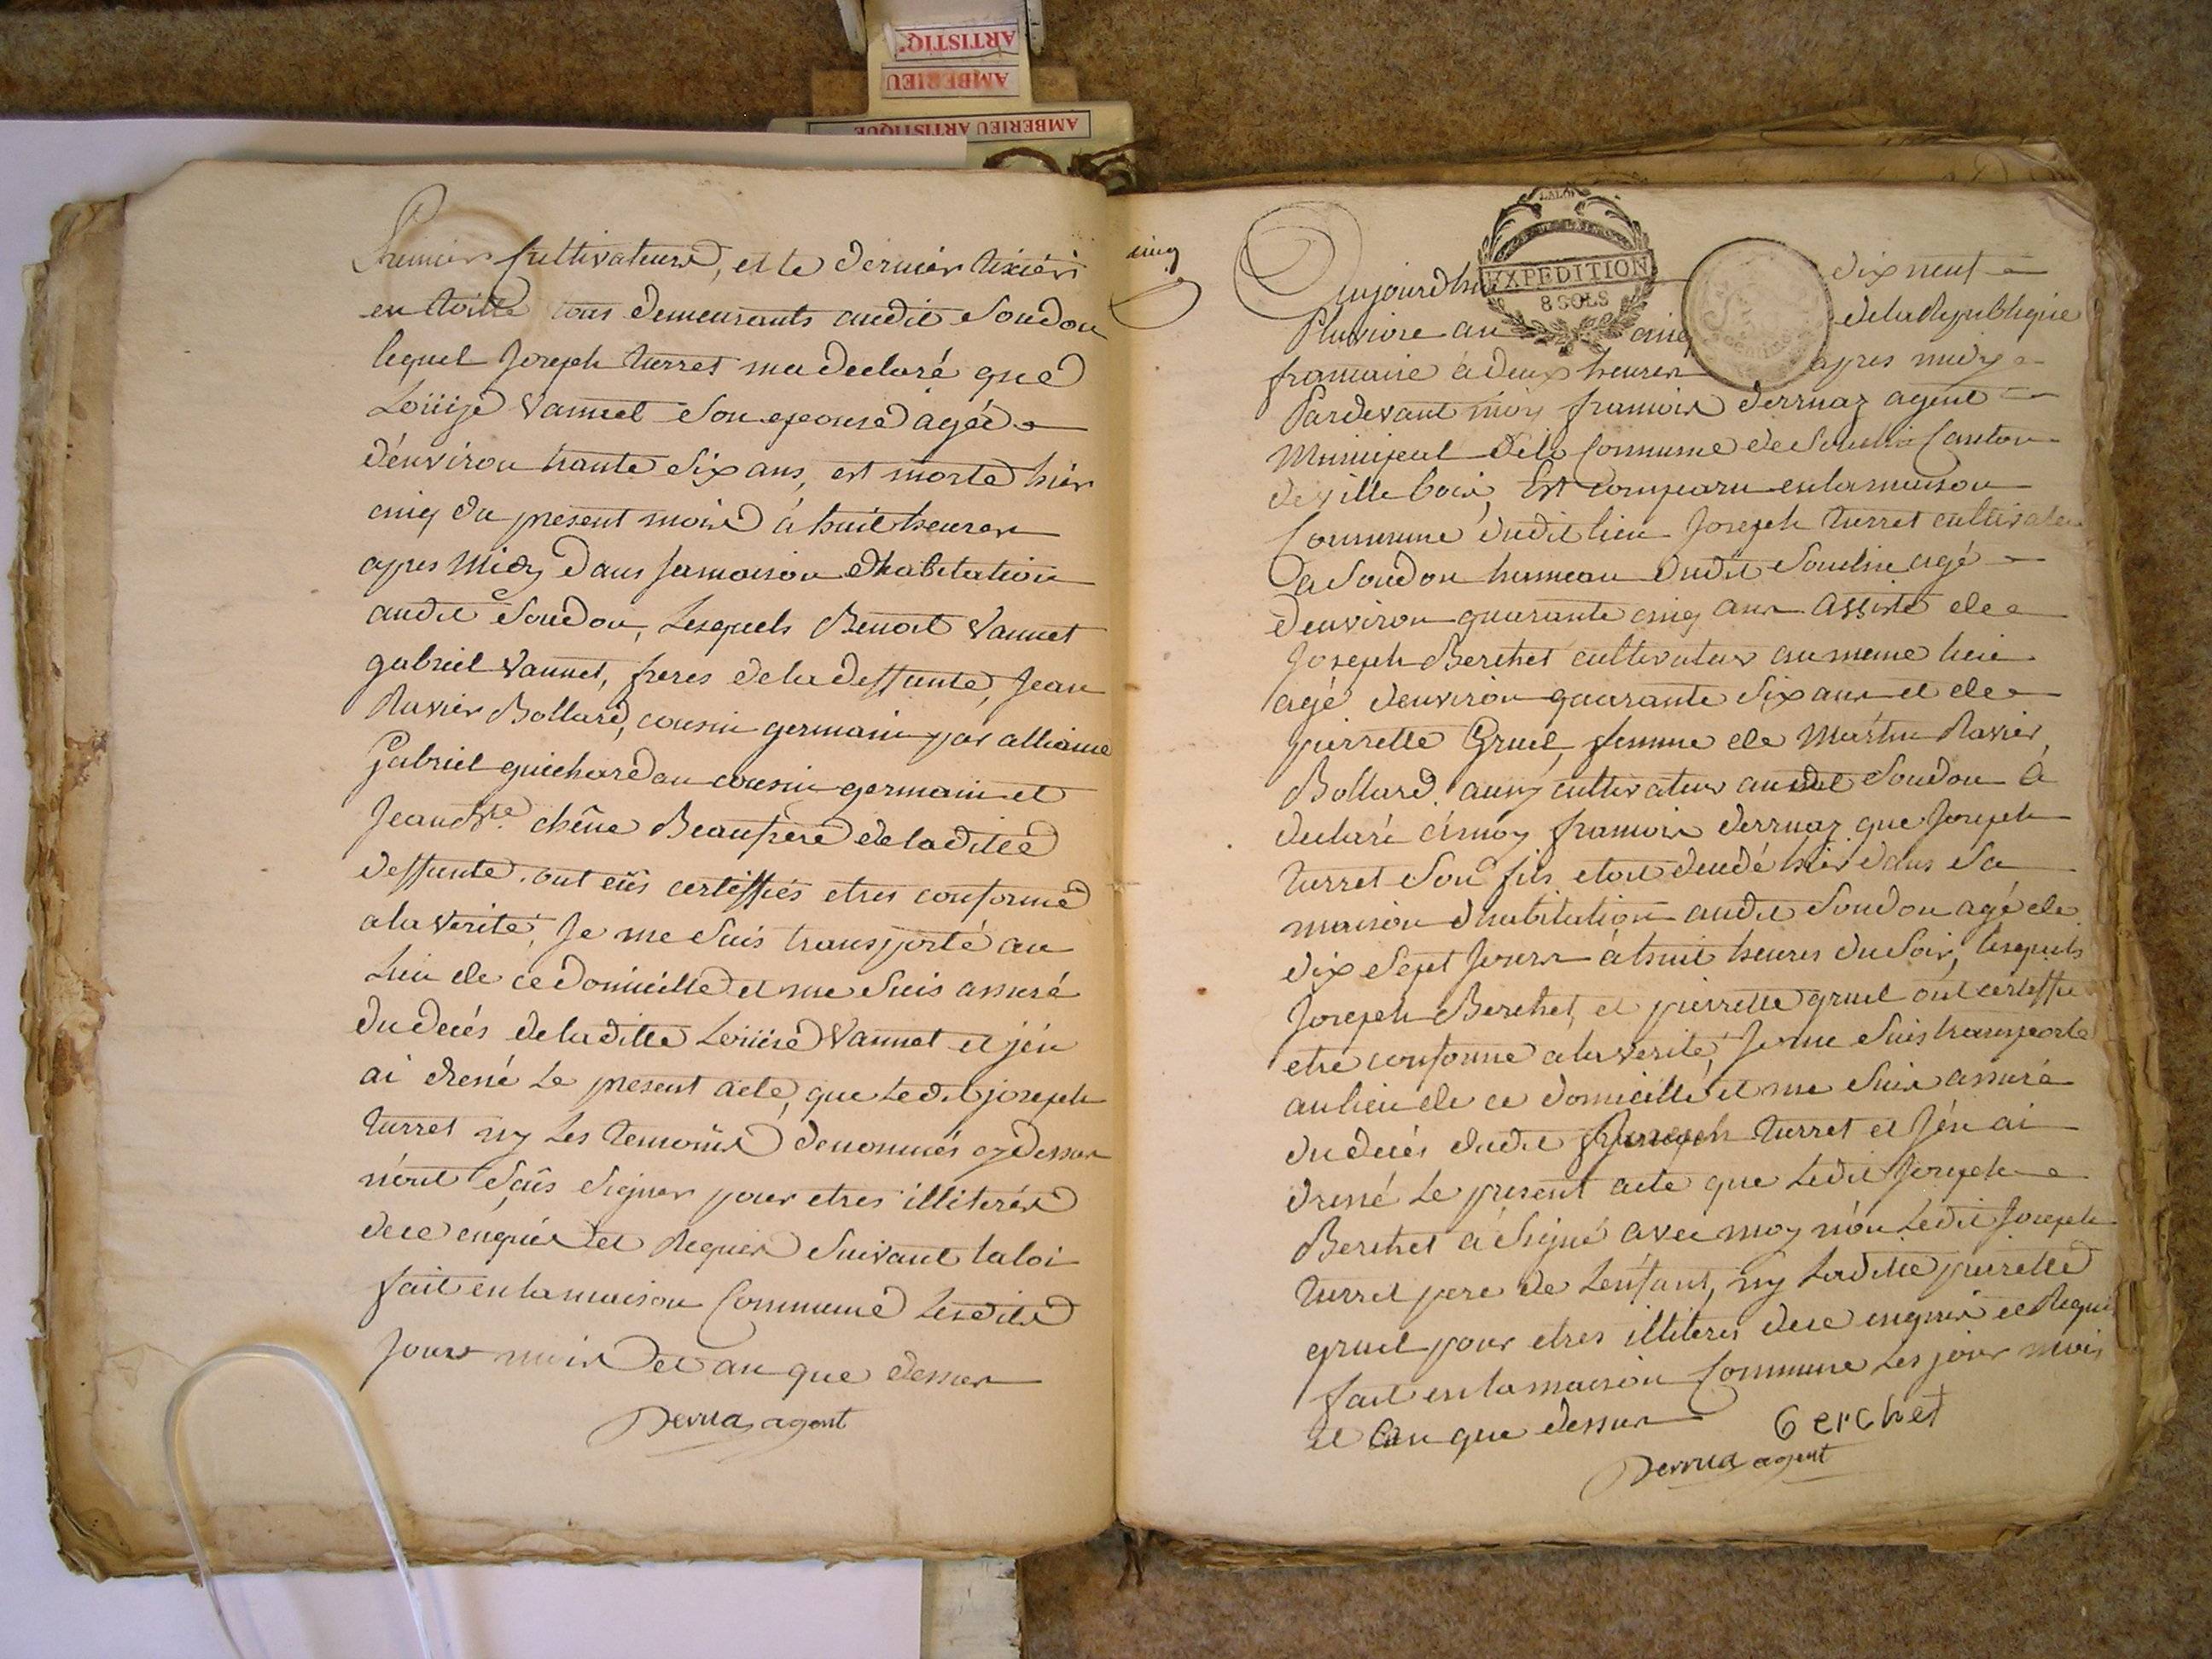 ARTISTIQ'
AMBERIEU
AMBERIEU ARTISTIQUE
Premiers Cultivateurs, et le dernier tixier
en toille tous demeurants audit Soudon
lequel Joseph turret ma declaré que
Loüise Vannet Son epouse agée
d'environ trante Six ans, est morte hier
cinq du present mois à huit heures
apres Midy dans sa maison d'habitation
audit Soudon, Lesquels Benoit Vannet
gabriel Vannet, freres de la deffunte, Jean
Ravier Bollard, cousin germain par alliance
Gabriel guichardan cousin germain et
Jean Bte chêne Beaufrere de la ditte
deffunte. ont eüs certiffiés etres conforme
a la verité, Je me Suis transporté au
Lieu de ce domicille et me Suis assuré
du decés de la ditte Loüise Vannet et j'en
ai dressé Le present acte, que Ledit joseph
turret ny Les temoins denommés cydessus
n'ont Sçûs Signer pour etres illiterés
de ce enquis et Requis Suivant la loi
fait en la maison Commune Lesdits
Jour mois et an que dessus
Derrua agent
cinq
LA LOI
EXPEDITION
8 SOLS
Aujourdhui dix neuf
Pluviose an cinq de la Republique
francaise à deux heures apres midy
Pardevant moy francois derruaz agent
Municipal de la Commune de Souclin Canton
de ville bois, Est comparu en la maison
Commune dudit lieu Joseph turret cultivateur
a Soudon hameau dudit Souclin agé
d'environ quarante cinq ans assisté de
Joseph Berchet cultivateur au meme lieu
agé d'environ quarante Six ans et de
pierrette Gruel, femme de Martin Ravier,
Bollard. aussy cultivateur audit Soudon à
declaré à moy francois derruaz que Joseph
turret Son fils, etoit decedé hier dans Sa
maison d'habitation audit Soudon agé de
dix Sept Jours à huit heures du Soir, lesquels
Joseph Berchet, et pierrette gruel ont certiffié
etre conforme a la verité, Je me Suis transporté
au lieu de ce domicille et me Suis assuré
du decés dudit Joseph turret et J'en ai
dressé Le present acte que Ledit Joseph
Berchet à Signé avec moy n'on Ledit Joseph
turret pere de L'enfant, ny Laditte pierette
gruel pour etres illiteres de ce enquis et Requis
fait en la maison Commune Les jour mois
et an que dessus
berchet
Derrua agent